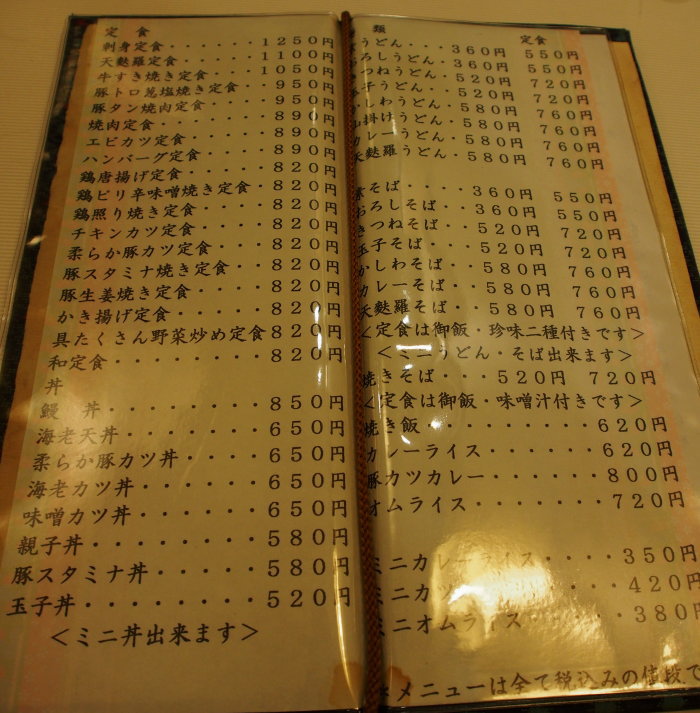 定食
刺身定食・・・・・・１２５０円
天麩羅定食・・・・・１１００円
牛すき焼き定食・・・１０５０円
豚トロ葱塩焼き定食・・９５０円
豚タン焼肉定食・・・・９５０円
焼肉定食・・・・・・・８９０円
エビカツ定食・・・・・８９０円
ハンバーグ定食・・・・８９０円
鶏唐揚げ定食・・・・・８２０円
鶏ピリ辛味噌焼き定食・８２０円
鶏照り焼き定食・・・・８２０円
チキンカツ定食・・・・８２０円
柔らか豚カツ定食・・・８２０円
豚スタミナ焼き定食・・８２０円
豚生姜焼き定食・・・・８２０円
かき揚げ定食・・・・・８２０円
具たくさん野菜炒め定食８２０円
和定食・・・・・・・・８２０円
丼
鰻丼・・・・・・・・８５０円
海老天丼・・・・・・・６５０円
柔らか豚カツ丼・・・・６５０円
海老カツ丼・・・・・・６５０円
味噌カツ丼・・・・・・６５０円
親子丼・・・・・・・・５８０円
豚スタミナ丼・・・・・５８０円
玉子丼・・・・・・・・５２０円
＜ミニ丼出来ます＞
類 定食
うどん・・・３６０円 ５５０円
おろしうどん・３６０円 ５５０円
きつねうどん・５２０円 ７２０円
玉子うどん・・５２０円 ７２０円
かしわうどん・５８０円 ７６０円
山掛けうどん・５８０円 ７６０円
カレーうどん・５８０円 ７６０円
天麩羅うどん・５８０円 ７６０円
素そば・・・・３６０円 ５５０円
おろしそば・・３６０円 ５５０円
きつねそば・・５２０円 ７２０円
玉子そば・・・５２０円 ７２０円
かしわそば・・５８０円 ７６０円
カレーそば・・５８０円 ７６０円
天麩羅そば・・５８０円 ７６０円
＜定食は御飯・珍味二種付きです＞
＜ミニうどん・そば出来ます＞
焼きそば・・・５２０円 ７２０円
＜定食は御飯・味噌汁付きです＞
焼き飯・・・・・・・・６２０円
カレーライス・・・・・６２０円
豚カツカレー・・・・・８００円
オムライス・・・・・・７２０円
ミニカレーライス・・・・３５０円
ミニカツ・・・・４２０円
ミニオムライス・・・・・３８０円
メニューは全て税込みの値段で